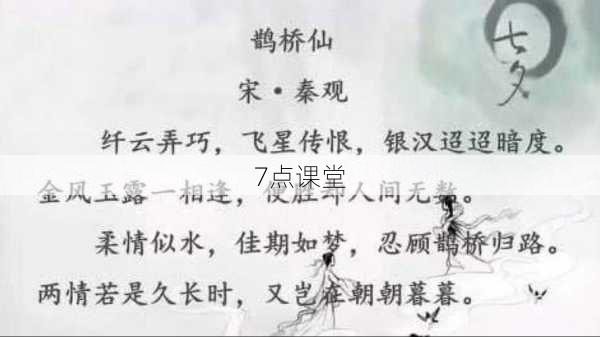 鹊桥仙
七夕
宋·秦观
纤云弄巧，飞星传恨，银汉迢迢暗度。
7点课堂
金风玉露一相逢，便胜却人间无数。
柔情似水，佳期如梦，忍顾鹊桥归路。
两情若是久长时，又岂在朝朝暮暮。